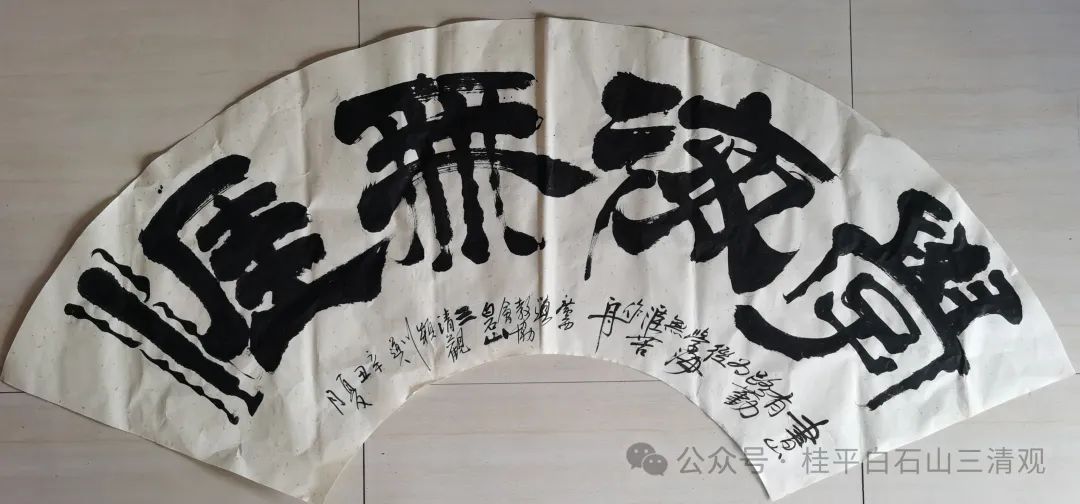 學海無涯
書山有路勤为徑學海無涯苦作舟
三清觀
辛丑夏月
公众号 · 桂平白石山三清观